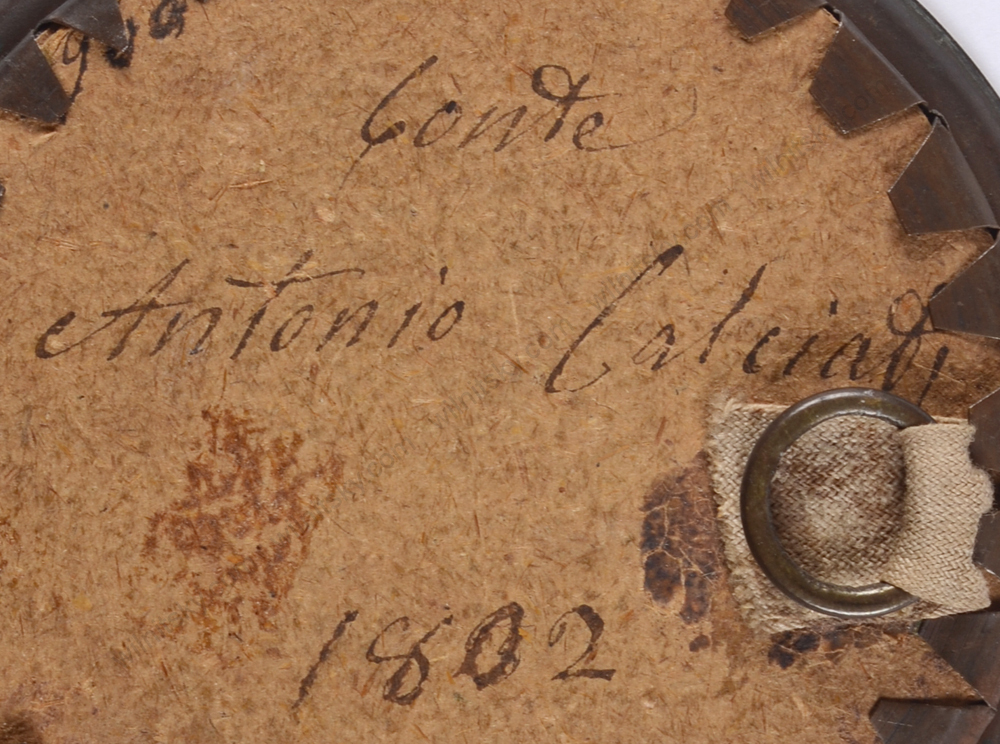 Conte
Antonio Calciati
1802